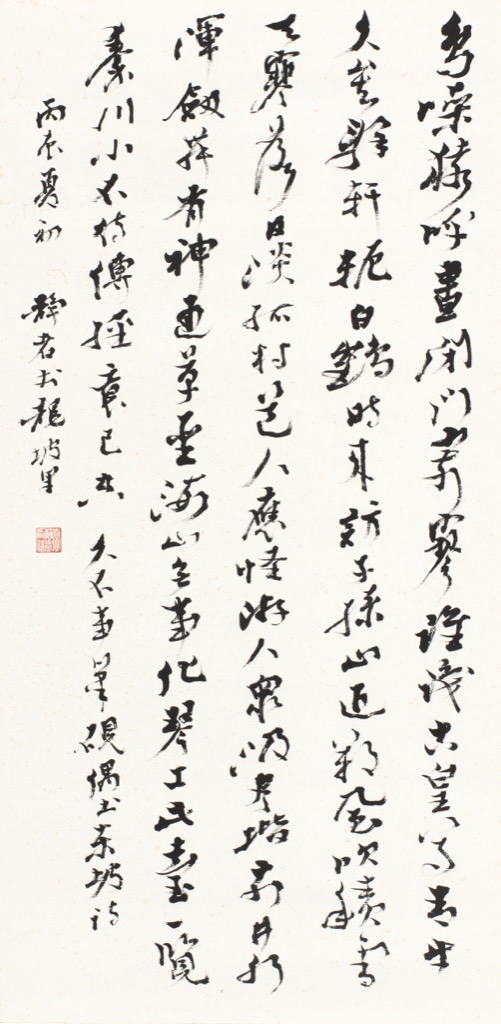 鳥噪猿呼晝閉門寂寥誰識古皇尊青牛
久矣辭轅軛白鶴時來訪子孫山近朔風吹積雪
天寒落日淡孤村道人應怪游人眾汲盡階前井水
渾劍舞有神通草聖海山無事化琴工此臺一覽
秦川小不待傳經意已空 久不事筆硯偶書東坡詩
丙辰夏初 靜者於龍坡里